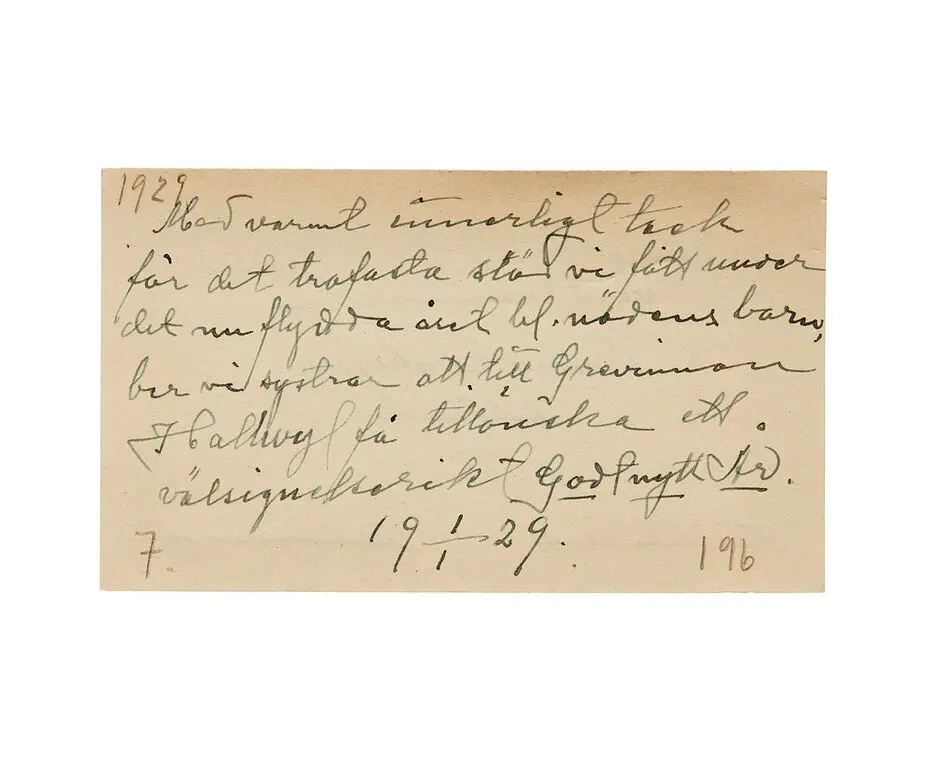 1929
Med varmt innerligt tack
för det trofasta stöd vi fått under
det nu flydda året bl. nödens barn,
ber vi systrar att till Grevinnan
Hallwyl få tillönska ett
välsignelserikt Godt nytt År.
19 1/1 29.
7.
196